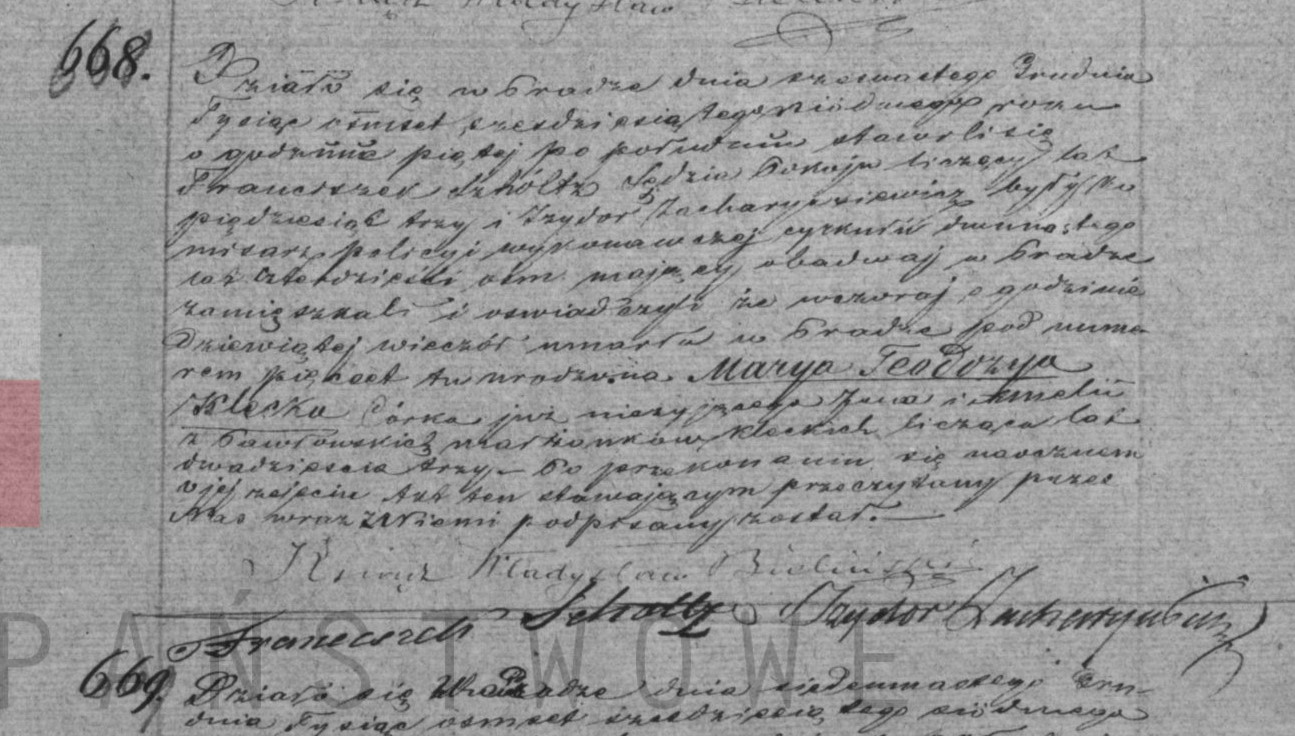 Władysław
668.
Działo się w Pradze dnia szesnastego Grudnia
Tysiąc ośmset szesdziesiątego siódmego roku
o godzinie piątej po południu stawili się
Franciszek Scholtz Sędzia Pokoju liczący lat
pięćdziesiąt trzy i Izydor Zacharyasiewicz były Ko
misarz policyi wykonawczej cyrkułu dwunastego
lat czterdzieści ośm mający obadwaj w Pradze
zamięszkali i oswiadczyli że wczoraj o godzinie
Dziewiątej wieczór umarła w Pradze pod nume
rem pięćset tu urodzona Marya Teodozya
Klecka Córka już nieżyjącego Jana i Amelii
z Pawłowskich małżonków Kleckich licząca lat
dwadzieścia trzy – Po przekonaniu się naocznem
o jej zejściu Akt ten stawającym przeczytany przez
Nas wraz z Niemi podpisany został. —
Ksiądz Władysław Bieliński
Franciszek Scholtz Izydor Zacharyasiewicz
PAŃSTWOWE
669. Działo się w Pradze dnia siedemnastego Gru-
dnia Tysiąc ośmset szesdziesiątego siódmego